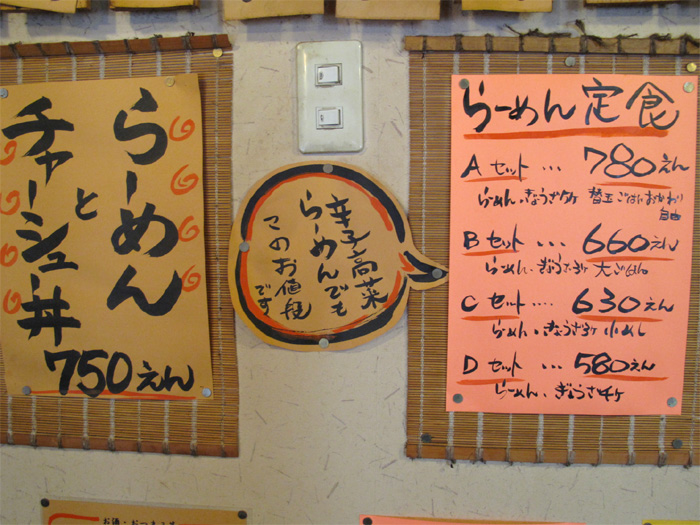 らーめん
と
チャーシュー丼
750えん
辛子高菜
らーめんでも
このお値段
です
らーめん定食
Aセット… 780えん
らーめん・ぎょうざ5ケ 替玉ごはんおかわり
自由
Bセット… 660えん
らーめん・ぎょうざ5ケ 大ごはん
Cセット…. 630えん
らーめん・ぎょうざ5ケ 小めし
Dセット… 580えん
らーめん・ぎょうざ5ケ